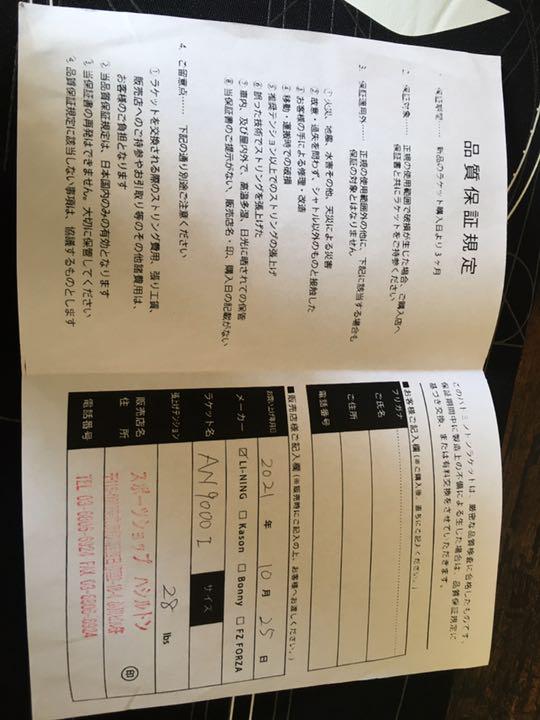 品質保証規定
1. 保証期間…… 新品のラケット購入日より3ヶ月
2. 保証対象…… 正規の使用範囲で破損が生じた場合、ご購入店へ
保証書と共にラケットをご持参ください
3. 保証適用外…… 正規の使用範囲外の他に、下記に該当する場合も
保証の対象とはなりません
① 火災、地震、水害その他、天災による災害
② 故意・過失を問わず、シャトル以外のものと接触した
③ お客様の手による修理・改造
④ 移動・運搬時での破損
⑤ 推奨テンション以上でのストリングの張上げ
⑥ 誤った技術でストリングを張上げた
⑦ 車内、及び屋内外で、高温多湿、日光に晒されての保管
⑧ 当保証書のご提示がない、販売店名・印、購入日の記載がない
4. ご留意点…… 下記の通り別途ご注意ください
① ラケットを交換される際のストリング費用、張り工賃、
販売店へのご持参やお引取り等のその他諸費用は、
お客様のご負担となります
② 当品質保証規定は、日本国内のみの有効となります
③ 当保証書の再発はできません。大切に保管してください
④ 品質保証規定に該当しない事項は、協議するものとします
このバトミントンラケットは、厳密な品質検査に合格したものです。
保証期間中に製造上の不備による生じた場合は、品質保証規定に
基づき交換、または有料交換をさせていただきます。
■お客様ご記入欄（※ご購入後、直ちにご記入ください。）
フリガナ
ご氏名
ご住所
電話番号
■販売店様ご記入欄（※販売時にご記入の上、お客様へお渡しください。）
お買い上げ年月日 2021 年 10 月 25 日
メーカー ☑ LI-NING □ Kason □ Bonny □ FZ FORZA
ラケット名 AN9000I サイズ
張上げテンション 28 lbs
販売店名 スポーツショップ ハシルトン
住 所 印
電話番号 TEL 03-6806-6924 FAX 03-6806-6924